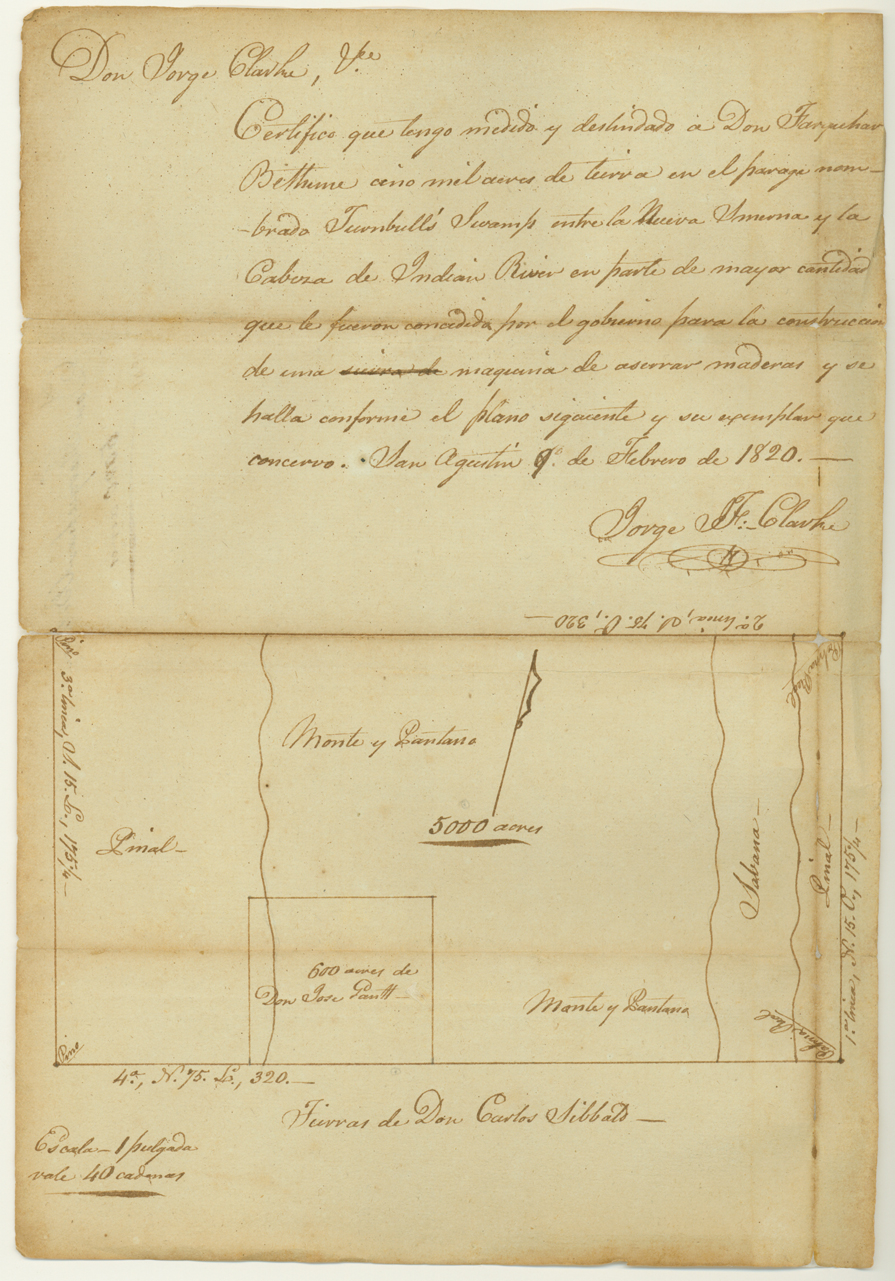 Don Jorge Clarke, Vce
Certifico que tengo medido y deslindado a Don Farquhar
Bethune cino mil acres de tierra en el parage nom-
-brado Turnbull's Swamp entre la Nueva Smerna y la
Cabeza de Indian River en parte de mayor cantidad
que le fueron concedida por el gobierno para la construccion
de una sierra de maquina de aserrar maderas y se
halla conforme el plano siguiente y su exemplar que
concervo. San Agustin 9o. de Febrero de 1820.—
Jorge J. F. Clarke
2a. linea, S. 75. O., 320—
Pino
3a. linea, S. 15. E., 175¼—
Monte y Pantano
5000 acres
Pinal—
Sabana—
Pinal—
1a. linea, N. 15. O., 175¼—
600 acres de
Don Jose Pautt—
Monte y Pantano
Pino
4a., N. 75. E., 320.—
Tierras de Don Carlos Sibbald—
Escala—1 pulgada
vale 40 cadenas